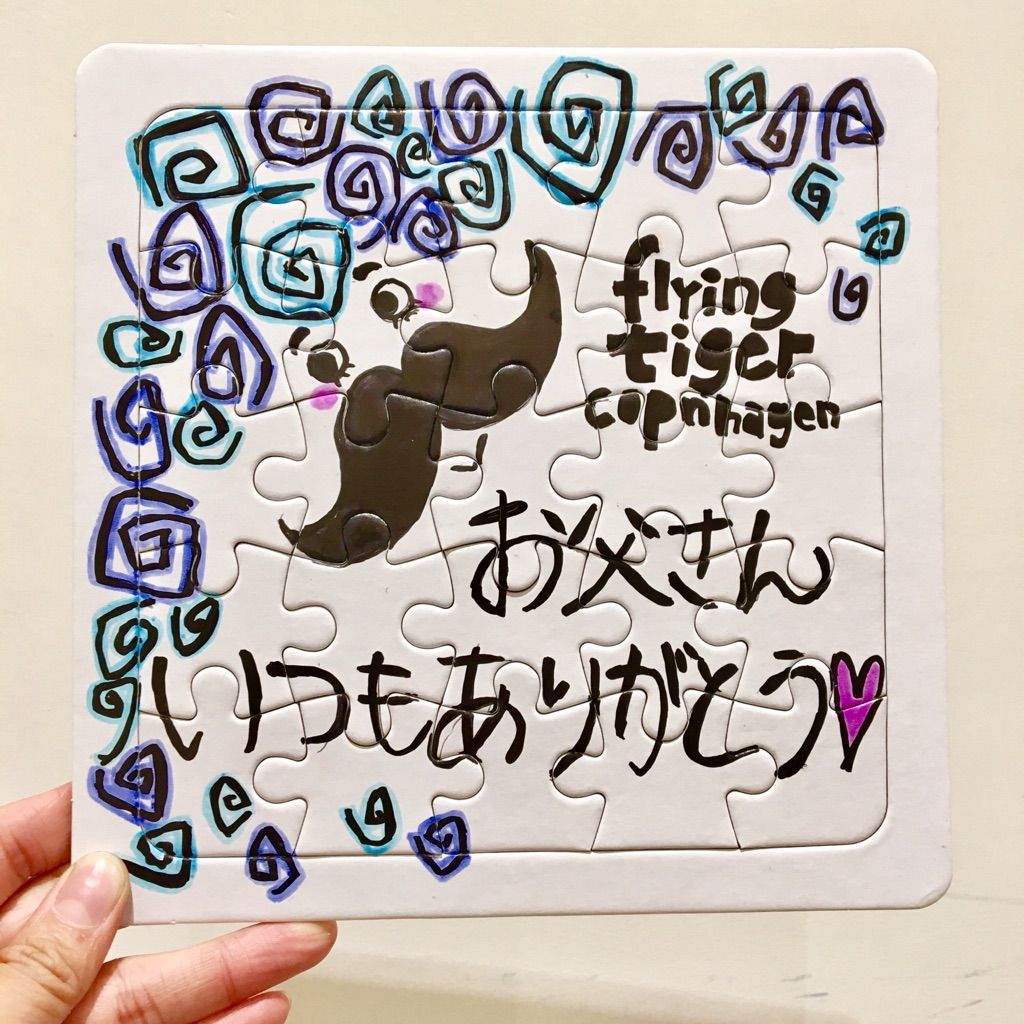 flying
tiger
copnhagen
お父さん
いつもありがとう♡